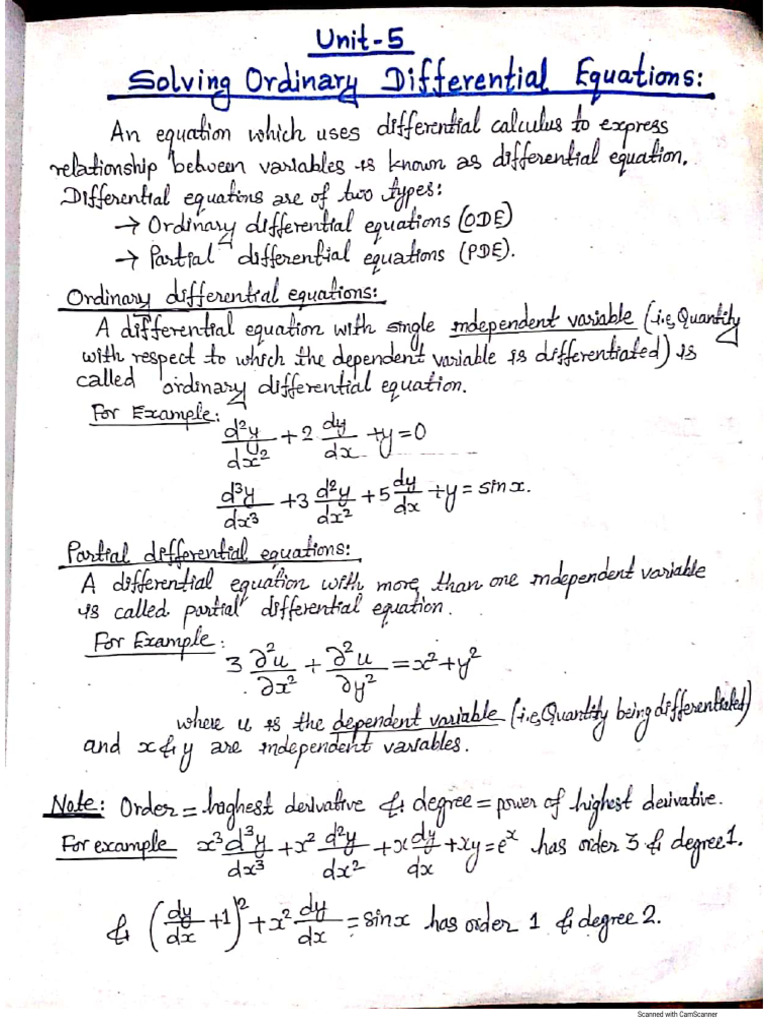 Unit-5
Solving Ordinary Differential Equations:
An equation which uses differential calculus to express
relationship between variables is known as differential equation.
Differential equations are of two types:
→ Ordinary differential equations (ODE)
→ Partial differential equations (PDE).
Ordinary differential equations:
A differential equation with single independent variable (i.e, Quantity
with respect to which the dependent variable is differentiated) is
called ordinary differential equation.
For Example:
d²y/dx² + 2 dy/dx + y = 0
d³y/dx³ + 3 d²y/dx² + 5 dy/dx + y = sin x.
Partial differential equations:
A differential equation with more than one independent variable
is called partial differential equation.
For Example:
3 ∂²u/∂x² + ∂²u/∂y² = x² + y²
where u is the dependent variable (i.e, Quantity being differentiated)
and x & y are independent variables.
Note: Order = haghest derivative & degree = power of highest derivative.
For example x³ d³y/dx³ + x² d²y/dx² + x dy/dx + xy = eˣ has order 3 & degree 1.
& (dy/dx + 1)² + x² dy/dx = sin x has order 1 & degree 2.
Scanned with CamScanner